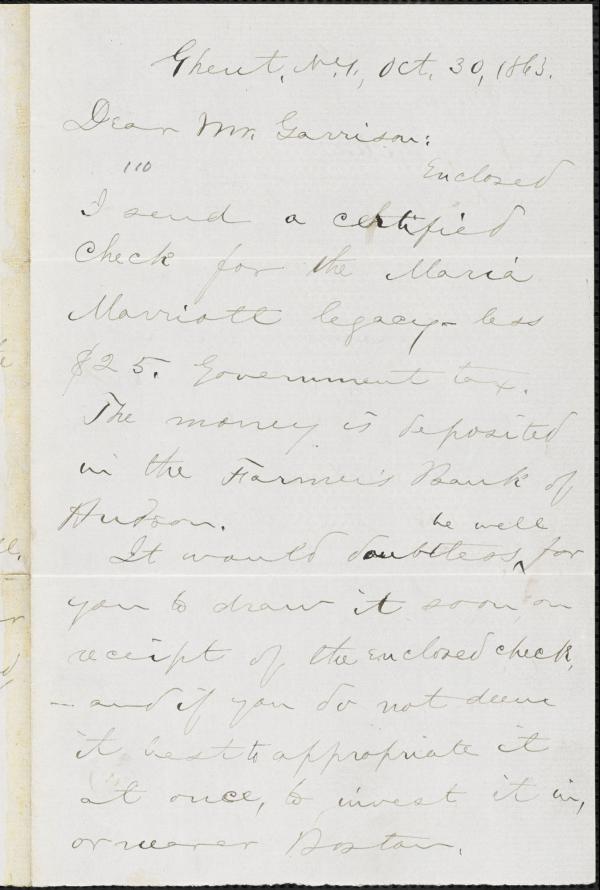 Ghent, N.Y., Oct. 30, 1863.
Dear Mr. Garrison:
110
Enclosed
I send a certified
check for the Maria
Marriott legacy - less
$25. Government tax.
The money is deposited
in the Farmer's Bank of
Hudson.
be well
It would doubtless ^ for
you to draw it soon, on
receipt of the enclosed check,
- and if you do not deem
it best to appropriate it
at once, to invest it in,
or nearer Boston.